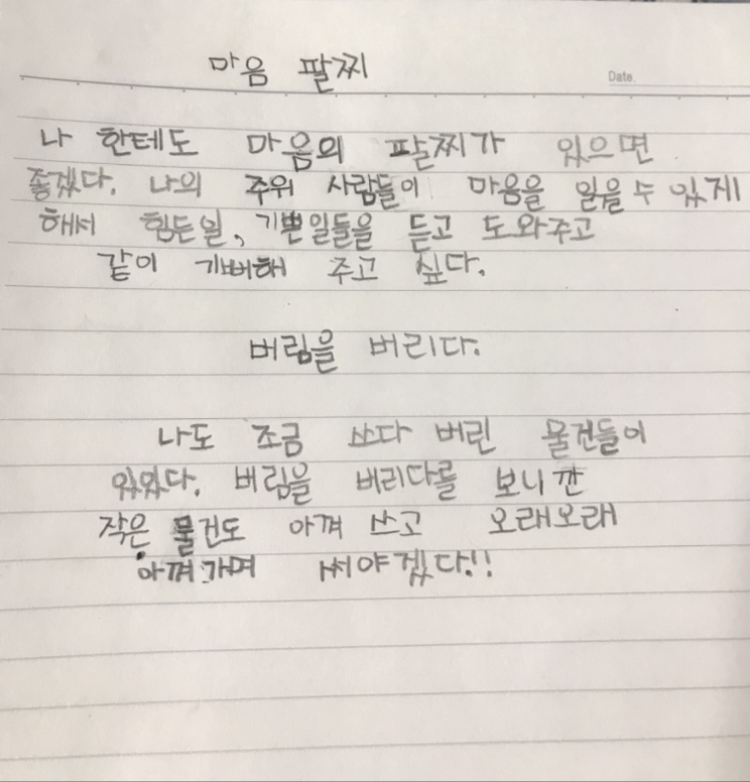 마음 팔찌
Date.
나 한테도 마음의 팔찌가 있으면
좋겠다. 나의 주위 사람들이 마음을 읽을 수 있게
해서 힘든일, 기쁜일들을 듣고 도와주고
같이 기뻐해 주고 싶다.
버림을 버리다.
나도 조금 쓰다 버린 물건들이
있었다. 버림을 버리다를 보니깐
작은 물건도 아껴 쓰고 오래오래
아껴가며 써야겠다!!